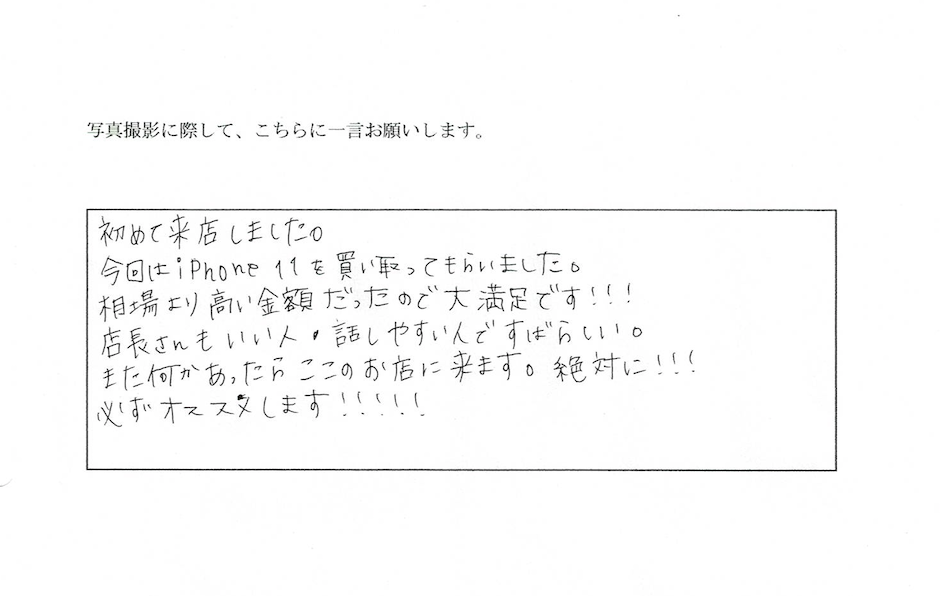 写真撮影に際して、こちらに一言お願いします。
初めて来店しました。
今回はiPhone 11を買い取ってもらいました。
相場より高い金額だったので大満足です!!!
店長さんもいい人・話しやすいんですばらしい。
また何かあったらここのお店に来ます。絶対に!!!
必ずオススメします!!!!!